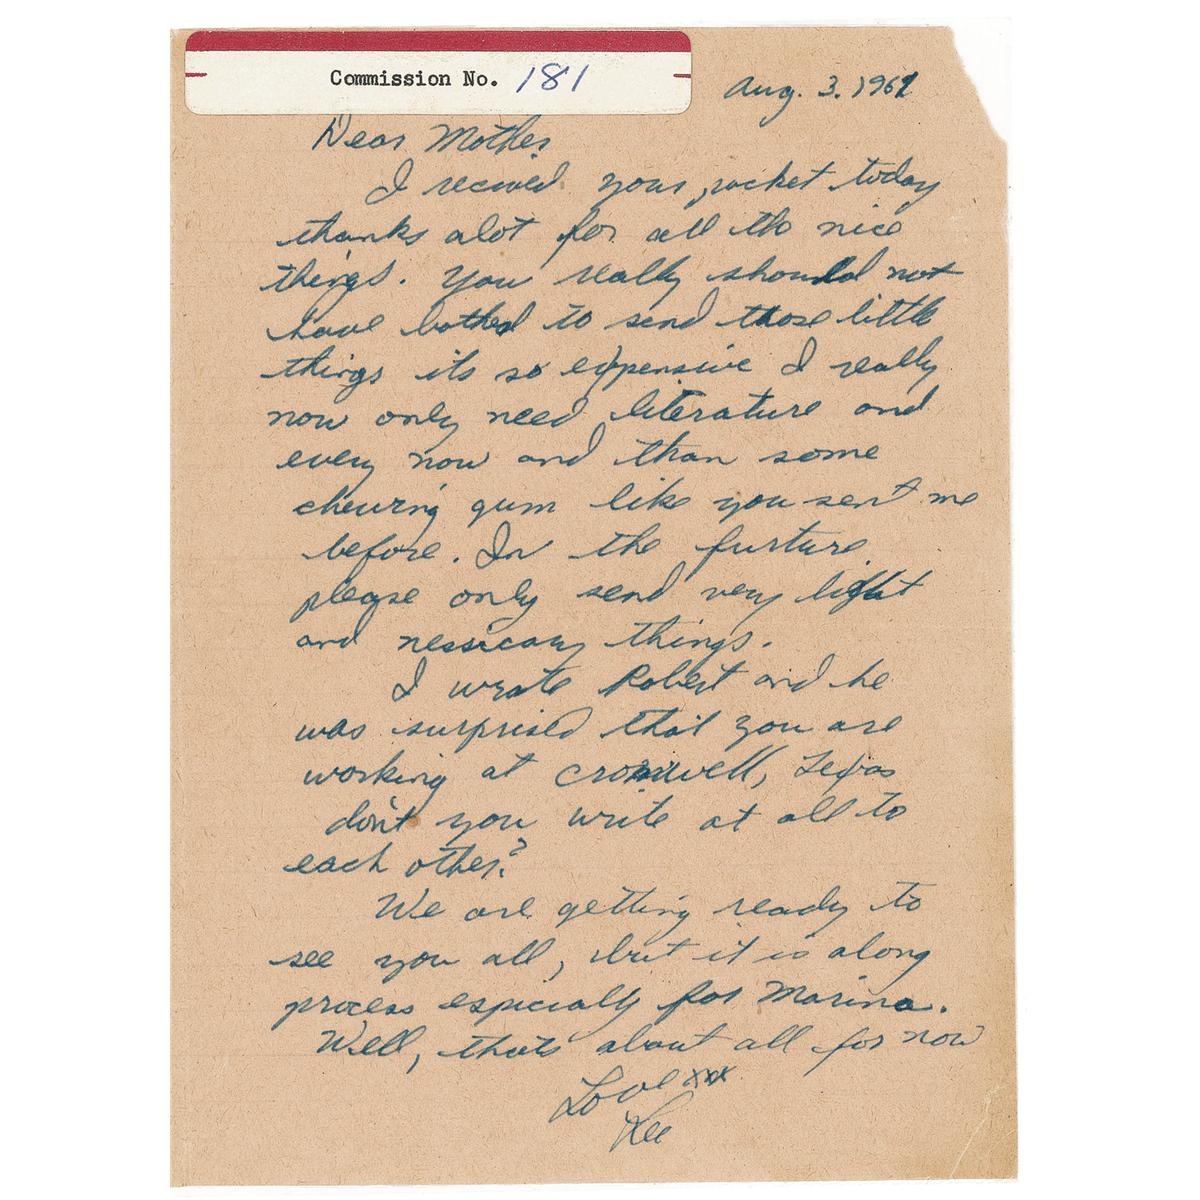 Commission No. 181
Aug. 3. 1961
Dear Mother
I recived your, packet today
thanks alot for all the nice
things. You really should not
have bothed to send those little
things its so expensive I really
now only need literature and
every now and than some
chewing gum like you sent me
before. In the furture
please only send very light
and nessicary things.
I wrote Robert and he
was surprised that you are
working at cromwell, Texas
don't you write at all to
each other?
We are getting ready to
see you all, but it is along
process espicially for Marina.
Well, thats about all for now
Love xxx
Lee